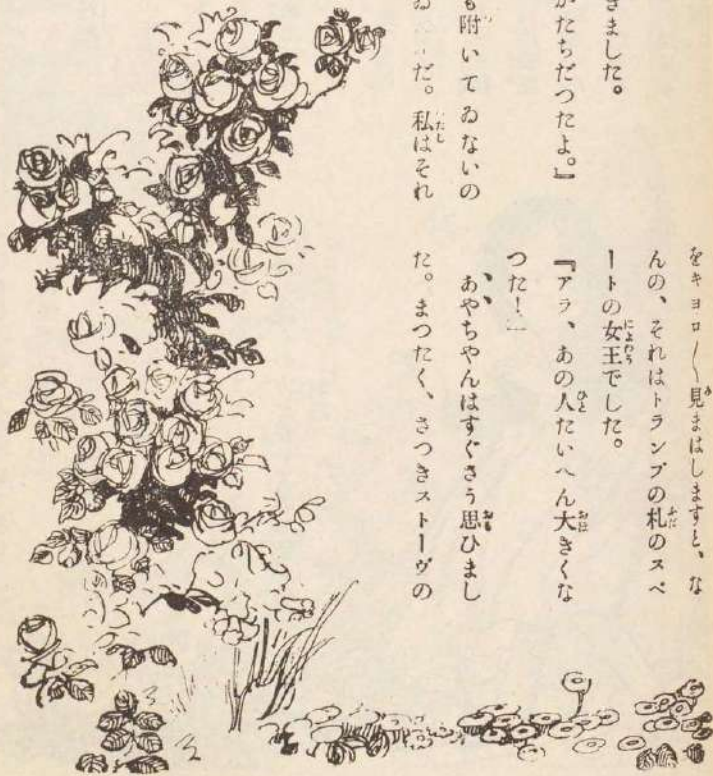 をキヨロ〱見まはしますと、な
んの、それはトランプの札のスペ
ートの女王でした。
『アラ、あの人たいへん大きくな
つた！』
あやちやんはすぐさう思ひまし
た。まつたく、さつきストーヴの
きました。
かたちだつたよ。』
も附いてゐないの
だ。私はそれ